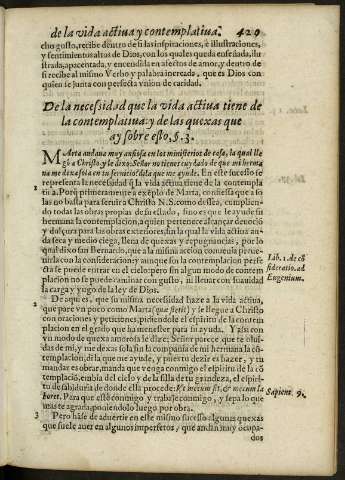 de la vida actiua y contemplatiua. 429
cho gusto, recibe dentro de si las inspiraciones, è illustraciones,
y sentimientos altos de Dios, con los quales queda enseñada, ilu
strada, apacentada, y encendida en afectos de amor, y dentro de
si recibe al mismo Verbo y palabra increada, que es Dios con
quien se junta con perfecta vnion de caridad.
De la necessidad que la vida actiua tiene de
la contemplatiua: y de las quexas que
ay sobre esto, §. 3.
MArta andaua muy ansiosa en los ministerios de casa, la qual lle
gò a Christo, y le dixo: Señor no tienes cuydado de que mi herma
na me dexa sola en tu seruicio? dila que me ayude. En este sucesso se
representa la necessidad q̃ la vida actiua tiene de la contempla
tiua. Porq̃ primeramente a exemplo de Marta, confiessa que a so
las no basta para seruir a Christo N. S. como dessea, cumpliendo
todas las obras propias de su estado, sino es que le ayude su
hermana la contemplacion, a quien pertenece alcançar deuociō
y dulçura para las obras exteriores, sin la qual la vida actiua an
da seca y medio ciega, llena de quexas y repugnancias, por lo
qual dixo san Bernardo, que a la misma accion conuenia preue-
nirla con la consideracion: y aunque sola contemplacion perfe
cta se puede entrar en el cielo: pero sin algun modo de contem
placion no se puede caminar con gusto, ni lleuar con suauidad
la carga y yugo de la ley de Dios.
Lib. 1. de cō
sideratio. ad
Eugenium.
2 De aqui es, que su misma necessidad haze a la vida actiua,
que pare vn poco como Marta (quæ stetit) y se llegue a Christo
con oraciones y peticiones, pidiendole el espiritu de la contem
placion en el grado que ha menester para su ayuda. Y assi con
vn modo de quexa amorosa le dize; Señor parece que te oluí-
das de mi, y me dexas sola sin la compañia de mi hermana la cō
templacion, di la que me ayude, y puesto dezir es hazer, y tu
mandar es obrar, manda que venga conmigo el espiritu de la cō
templaciō, embia del cielo y de la silla de tu grandeza, el espiri-
tu de sabiduria de donde ella procede: Vt mecum sit, & mecum la
boret. Para que estè conmigo y trabaje conmigo, y sepa lo que
mas te agrada, poniendolo luego por obra.
Sapient. 9.
3 Pero hase de aduertir en este mismo sucesso algunas quexas
que suele auer en algunos imperfetos, que andan muy ocupa-
dos